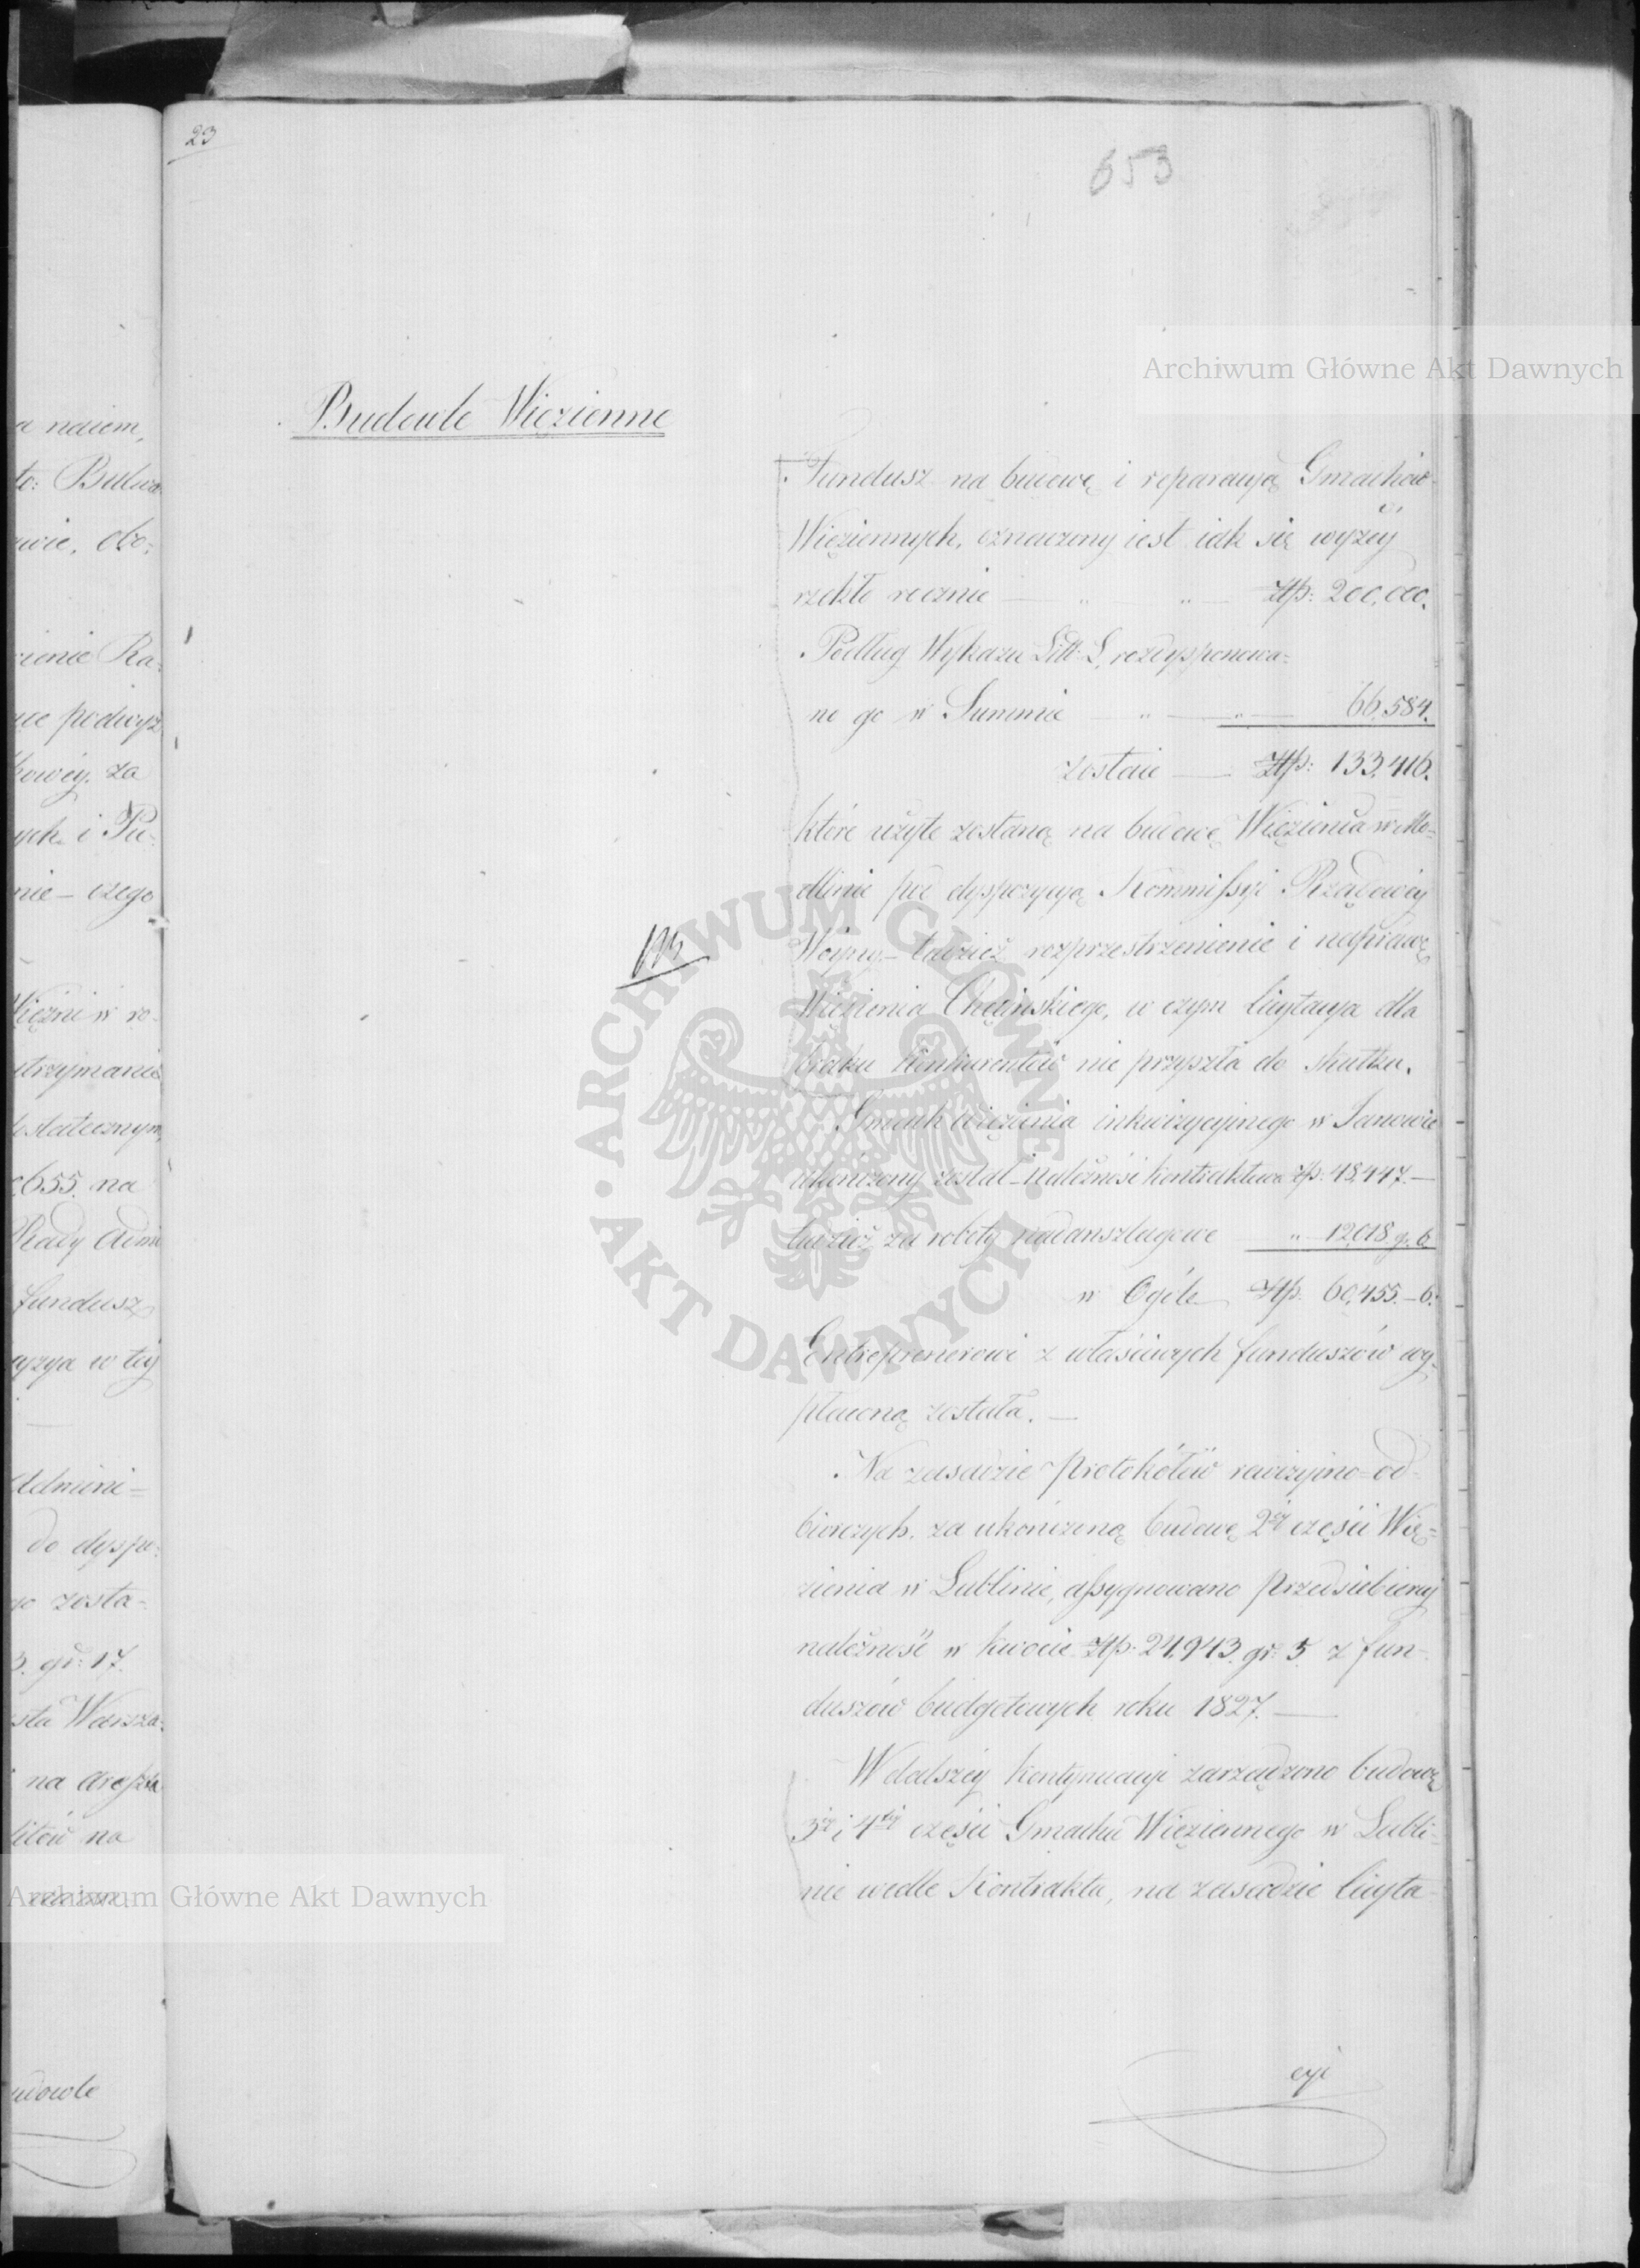 23
653
Archiwum Główne Akt Dawnych
Budowle Więzienne
Fundusz na budowę i reparacyą Gmachów
Więziennych, oznaczony iest iak się wyżéy
rzekło rocznie — „ — „ — Złp: 200,000.
Podług Wykazu Litt: S, rozdysponowa=
no go w Summie — „ — „ — 66,584.
zostaie — Złp: 133,416.
które użyte zostaną na budowę Więzienia w Mo=
dlinie pod dyspozycyą Kommissyi Rządowéy
Woyny – tudzież rozprzestrzenienie i naprawę
Więzienia Chęcińskiego, w czym licytacya dla
braku konkurentów nie przyszła do skutku.
Gmach więzienia inkwizycyinego w Janowie
ukończony został – należność kontraktowa złp: 48,447. —
tudzież za roboty nadanszlagowe — „ — 12,018 g. 6
w Ogóle Złp. 60,455. – 6.
Entreprenerowi z właściwych funduszów wy=
płaconą została. —
Na zasadzie protokółów rewizyino=od=
biorczych, za ukończoną budowę 2éy części Wię=
zienia w Lublinie, assygnowano przedsiebiercy
należność w kwocie Złp. 24,943. gr: 5. z fun=
duszów budgetowych roku 1827. —
W dalszéy kontynuacyi zarządzono budowę
3éy i 4téy części Gmachu Więziennego w Lubli=
nie wedle Kontraktu, na zasadzie licyta=
cyi
a naiem,
to:
wie, obo=
zienie Ra=
podwyż
kowéy. za
ych i Pu=
nie – czego
Więzni w ro=
trzymanie
dostatecznym,
655. na
Rady Admi
fundusz
w téy
Admini=
do dyspo:
zosta=
3. gr: 17.
sta Warsza=
na
na
udowle
Archiwum Główne Akt Dawnych
ARCHIWUM GŁÓWNE • AKT DAWNYCH •